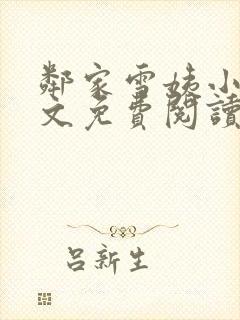 鄰家雪姨小
文免費閱讀
呂新生